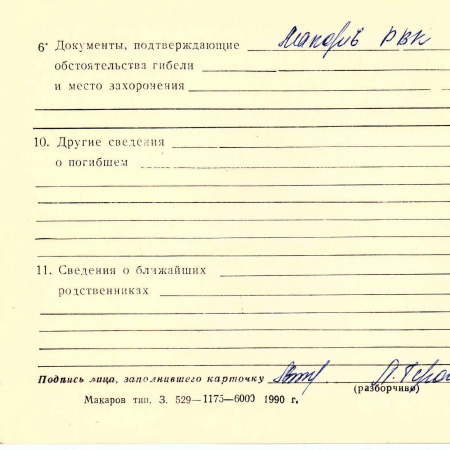 6. Документы, подтверждающие РВК
обстоятельства гибели
и место захоронения
10. Другие сведения
о погибшем
11. Сведения о ближайших
родственниках
Подпись лица, заполнившего карточку
(разборчиво)
Макаров тип. З. 529—1175—6000 1990 г.